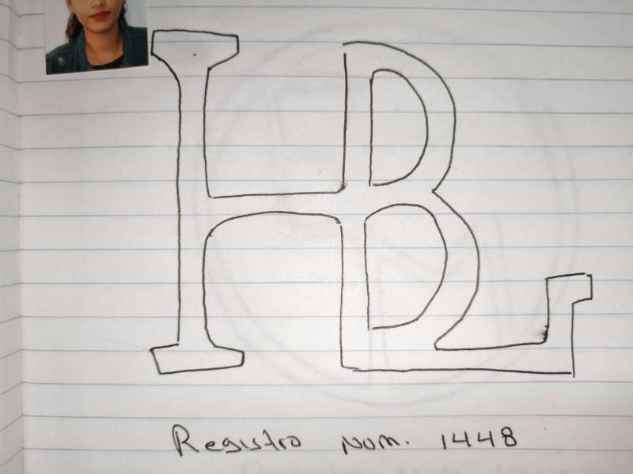 HBL
Registro Num. 1448